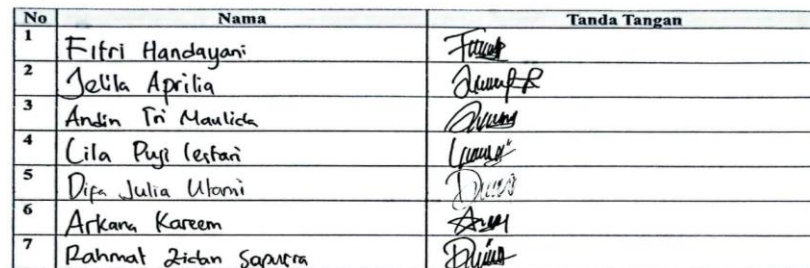 No Nama Tanda Tangan
1 Fitri Handayani
2 Jelila Aprilia
3 Andin Tri Maulida
4 Cila Puji lestari
5 Difa Julia Utami
6 Arkana Kareem
7 Rahmat Zidan Saputra